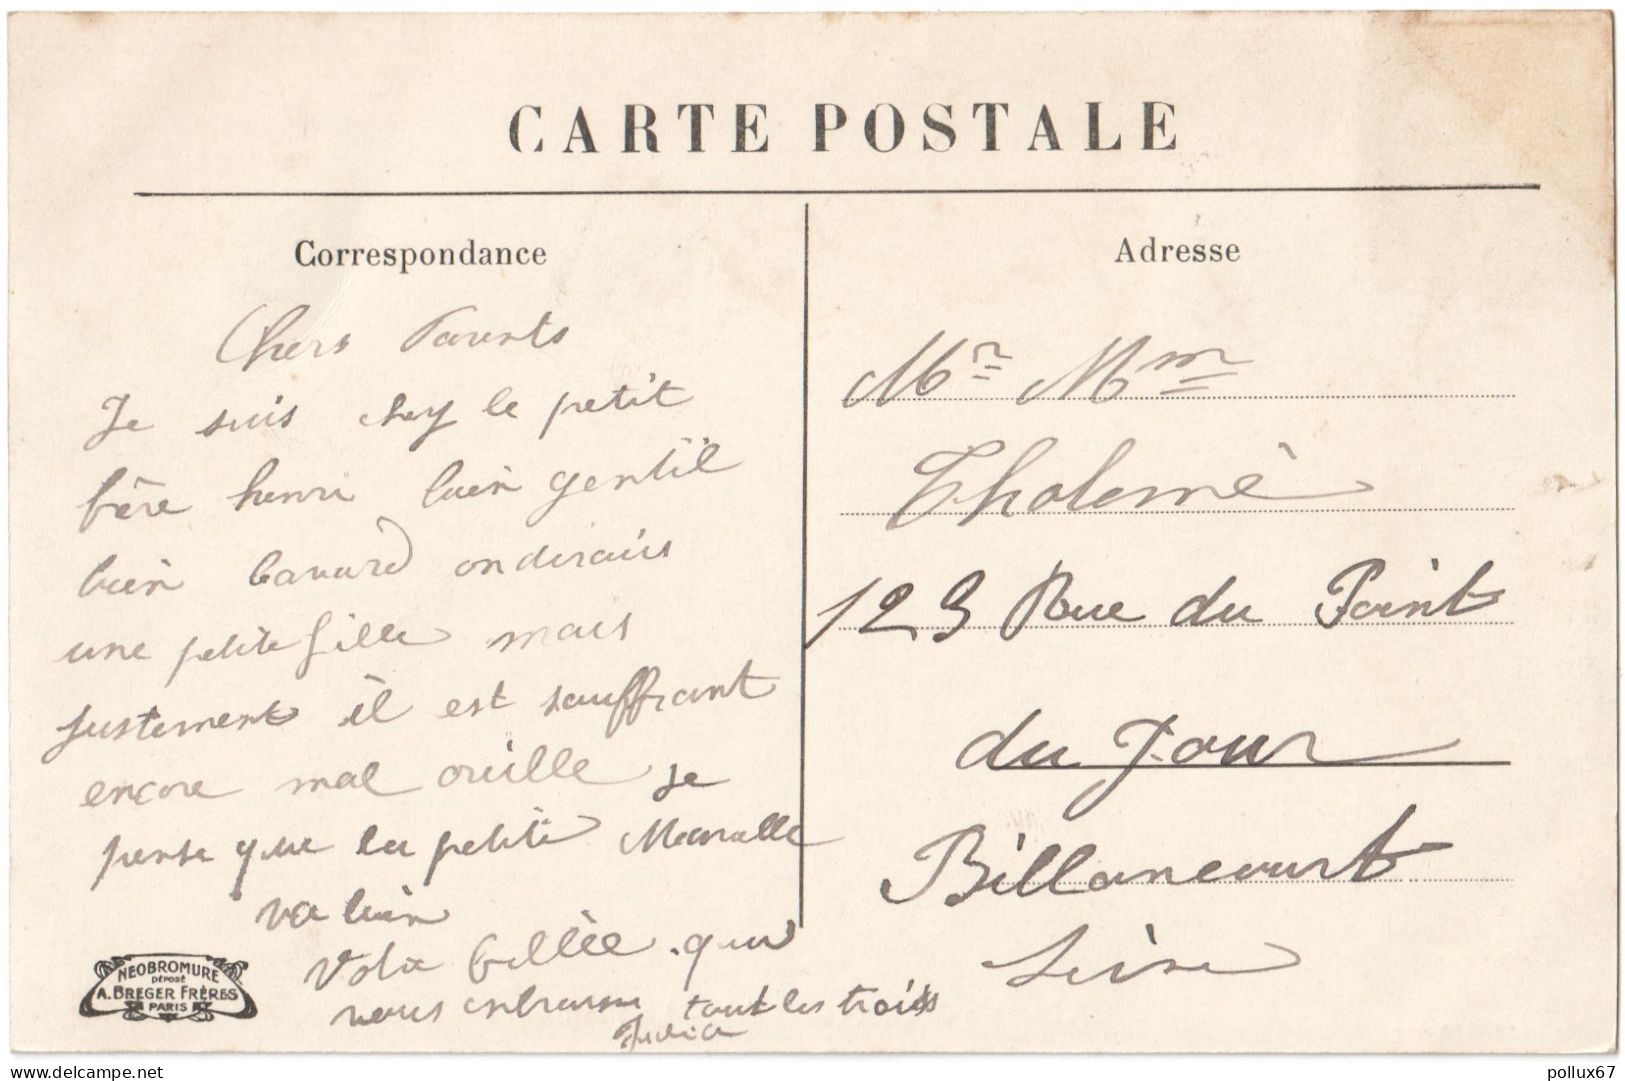 CARTE POSTALE
Correspondance
Chers Parents
Je suis chez le petit
frère henri bien gentil
bien bavard ondirais
une petite fille mais
justement il est souffrant
encore mal oreille je
pense que la petite Marcelle
va bien
Votre fillèe qui
vous embrasse tout les trois
Julia
Adresse
Mr Mm
Tholomè
123 Rue du Point
du Jour
Billancourt
Seine
NEOBROMURE
DÉPOSÉ
A. BREGER FRÈRES
PARIS
delcampe.net
pollux67